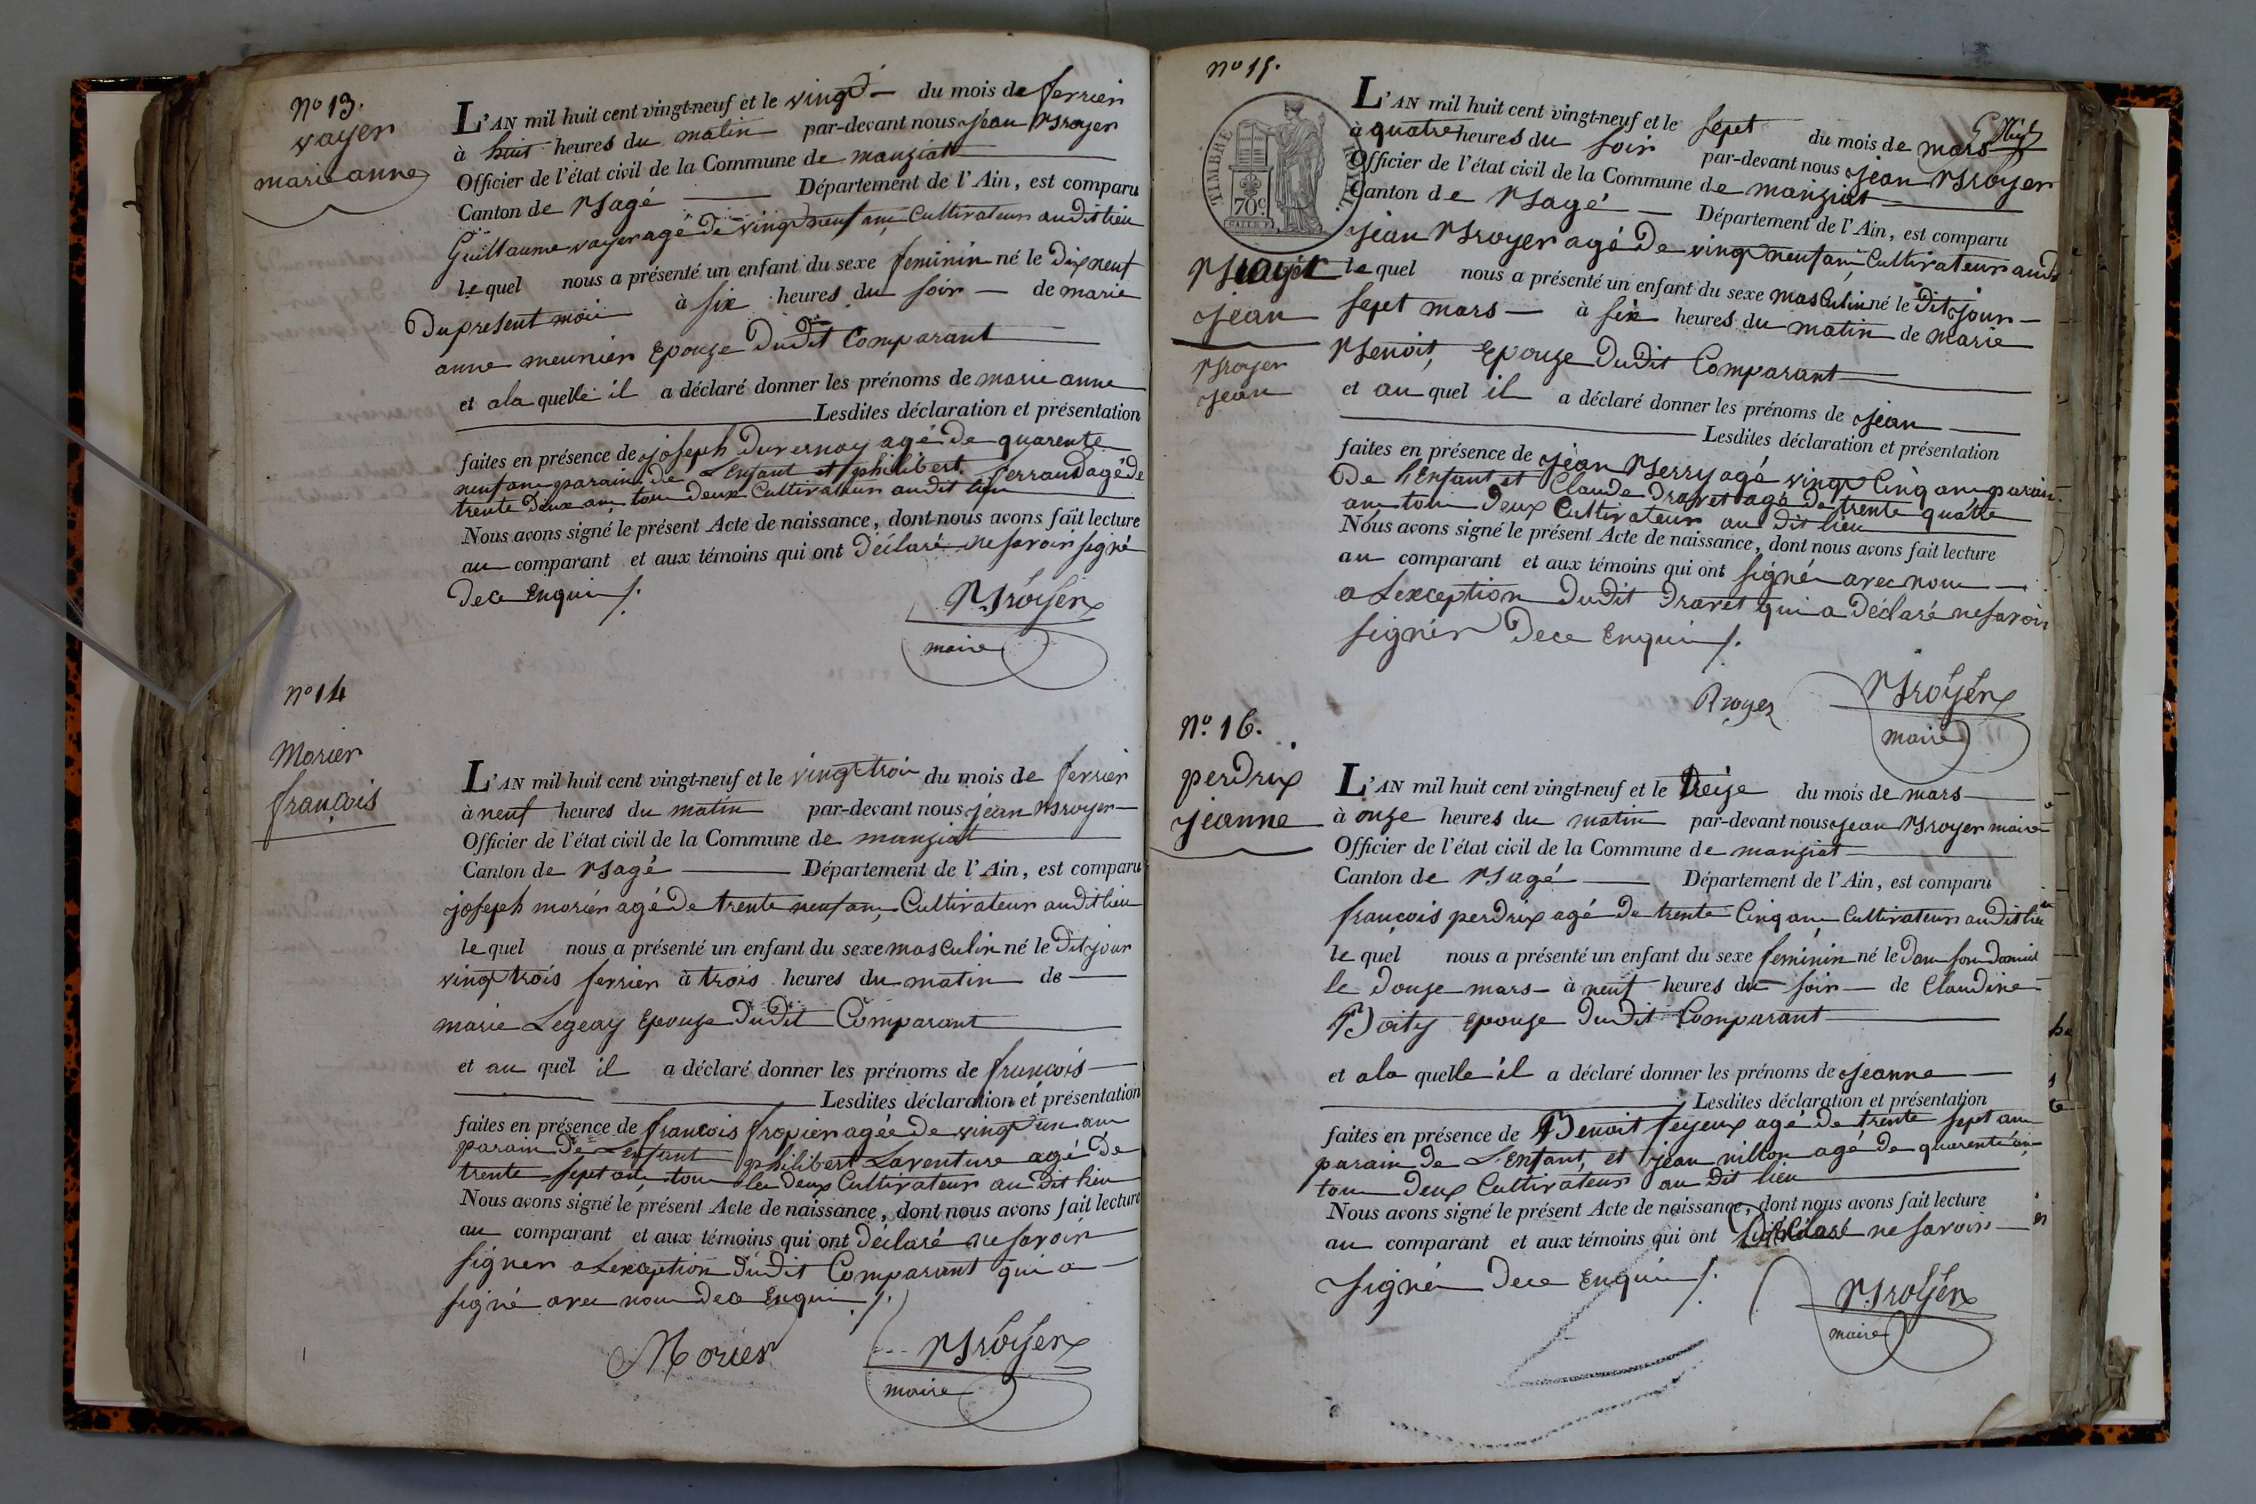 n° 13.
voyer
marie anne
L'AN mil huit cent vingt-neuf et le vingt du mois de fevrier
à huit heures du matin par-devant nous jean Broyer
Officier de l'état civil de la Commune de manziat
Canton de Bagé Département de l'Ain, est comparu
Guillaume voyer agé de vingt neuf ans Cultivateur audit lieu
le quel nous a présenté un enfant du sexe feminin né le Dix neuf
Du present mois à six heures du soir de marie
anne meunier Epouze Dudit Comparant
et ala quelle il a déclaré donner les prénoms de marie anne
Lesdites déclaration et présentation
faites en présence de joseph Duvernay agé de quarente
neuf ans parain de L'enfant et philibert ferrand agé de
trente Deux ans tous Deux Cultivateurs audit lieu
Nous avons signé le présent Acte de naissance, dont nous avons fait lecture
au comparant et aux témoins qui ont Déclaré ne savoir signé
Dece Enquis ./.
Broyer
maire
n° 14
Morier
françois
L'AN mil huit cent vingt-neuf et le vingt trois du mois de fevrier
à neuf heures du matin par-devant nous jean Broyer
Officier de l'état civil de la Commune de manziat
Canton de Bagé Département de l'Ain, est comparu
joseph morier agé De trente neuf ans Cultivateur audit lieu
le quel nous a présenté un enfant du sexe masculin né le Dit jour
vingt trois fevrier à trois heures du matin de
marie Legeay Epouze Dudit Comparant
et au quel il a déclaré donner les prénoms de françois
Lesdites déclaration et présentation
faites en présence de francois fropier agée de vingt un ans
parain De L'enfant philibert Laventure agé De
trente sept ans tous les deux Cultivateurs au Dit lieu
Nous avons signé le présent Acte de naissance, dont nous avons fait lecture
au comparant et aux témoins qui ont déclaré ne savoir
signer a Lexception Dudit Comparant qui a
signé avec nous Dece Enquis ./.
Morier
Broyer
maire
n° 15.
TIMBRE ROYAL
70c
Broyer
jean
Broyer
jean
L'AN mil huit cent vingt-neuf et le sept du mois de mars
à quatre heures du soir par-devant nous jean Broyer
Officier de l'état civil de la Commune de manziat
Canton de Bagé Département de l'Ain, est comparu
jean Broyer agé De vingt neuf ans Cultivateur audit
le quel nous a présenté un enfant du sexe masculin né le Dit jour
sept mars à six heures du matin de marie
Benoit, Epouze Dudit Comparant
et au quel il a déclaré donner les prénoms de jean
Lesdites déclaration et présentation
faites en présence de jean Berry agé vingt Cinq ans parain
De L'enfant et Claude Dravet agé de trente quatre
ans tous Deux Cultivateurs au dit lieu
Nous avons signé le présent Acte de naissance, dont nous avons fait lecture
au comparant et aux témoins qui ont signé avec nous
a Lexception Dudit Dravet qui a Déclaré ne savoir
signer Dece Enquis ./.
Broyer
Broyer
maire
N° 16.
perdrix
jeanne
L'AN mil huit cent vingt-neuf et le treize du mois de mars
à onze heures du matin par-devant nous jean Broyer maire
Officier de l'état civil de la Commune de manziat
Canton de Bagé Département de l'Ain, est comparu
françois perdrix agé de trente Cinq ans Cultivateur audit lieu
le quel nous a présenté un enfant du sexe feminin né le Dans son Domicil
le Douze mars à neuf heures du soir de Claudine
Boity Epouze Dudit Comparant
et ala quelle il a déclaré donner les prénoms de jeanne
Lesdites déclaration et présentation
faites en présence de Benoit feyeux agé de trente sept ans
parain de L'enfant, et jean nillon agé de quarente ans
tous Deux Cultivateurs au dit lieu
Nous avons signé le présent Acte de naissance, dont nous avons fait lecture
au comparant et aux témoins qui ont Déclaré ne savoir
signé Dece Enquis ./.
Broyer
maire